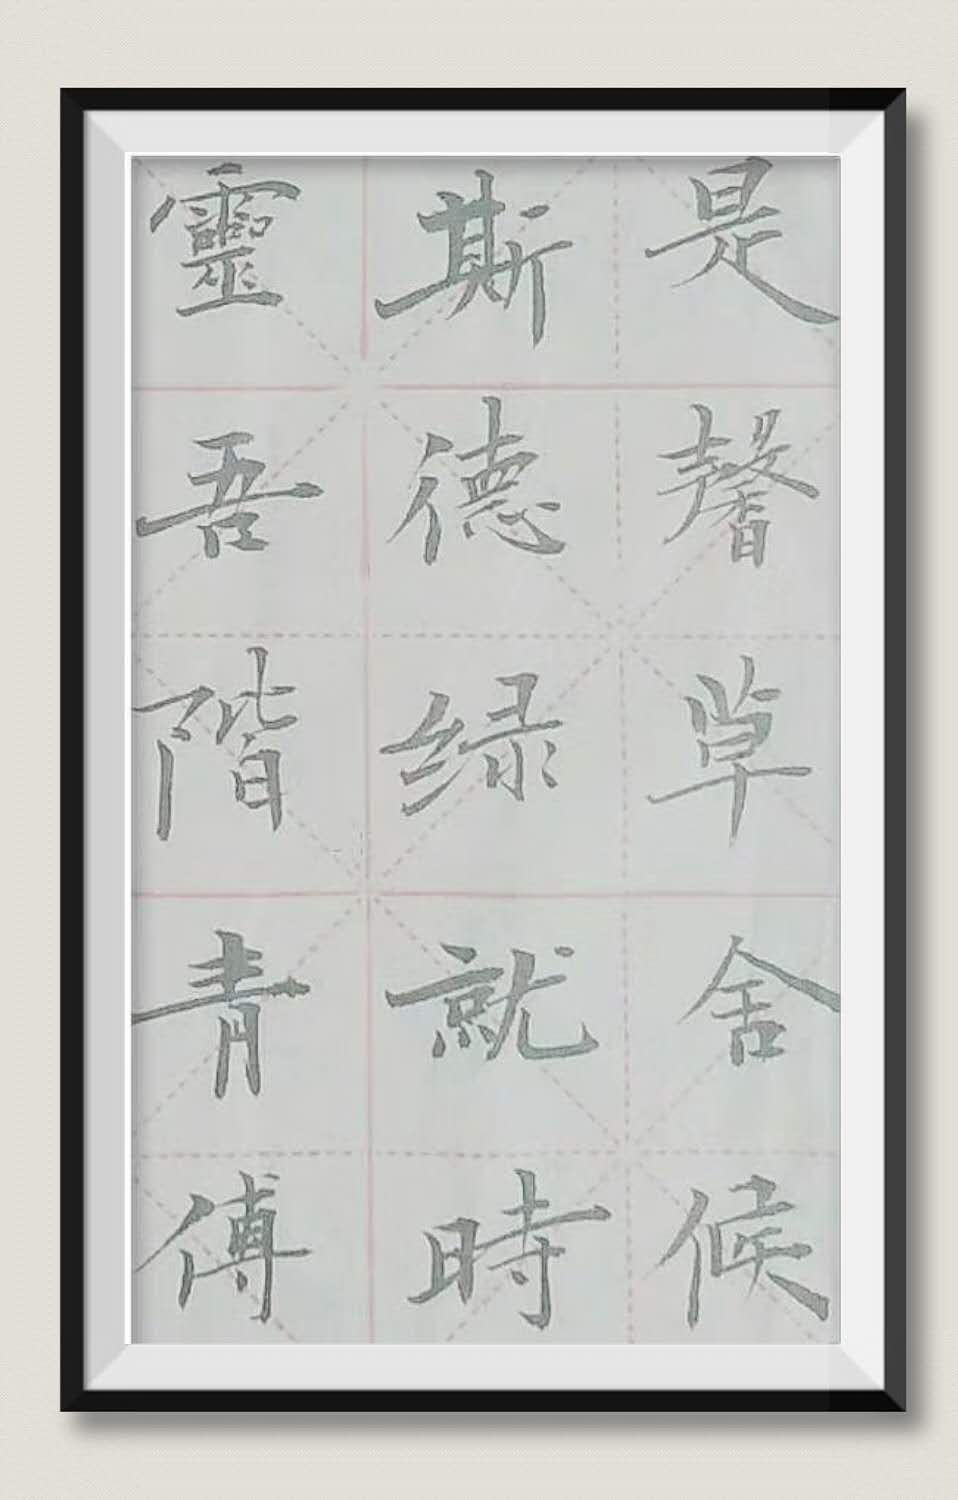 靈斯是
吾德馨
階绿草
青就舍
傅時候